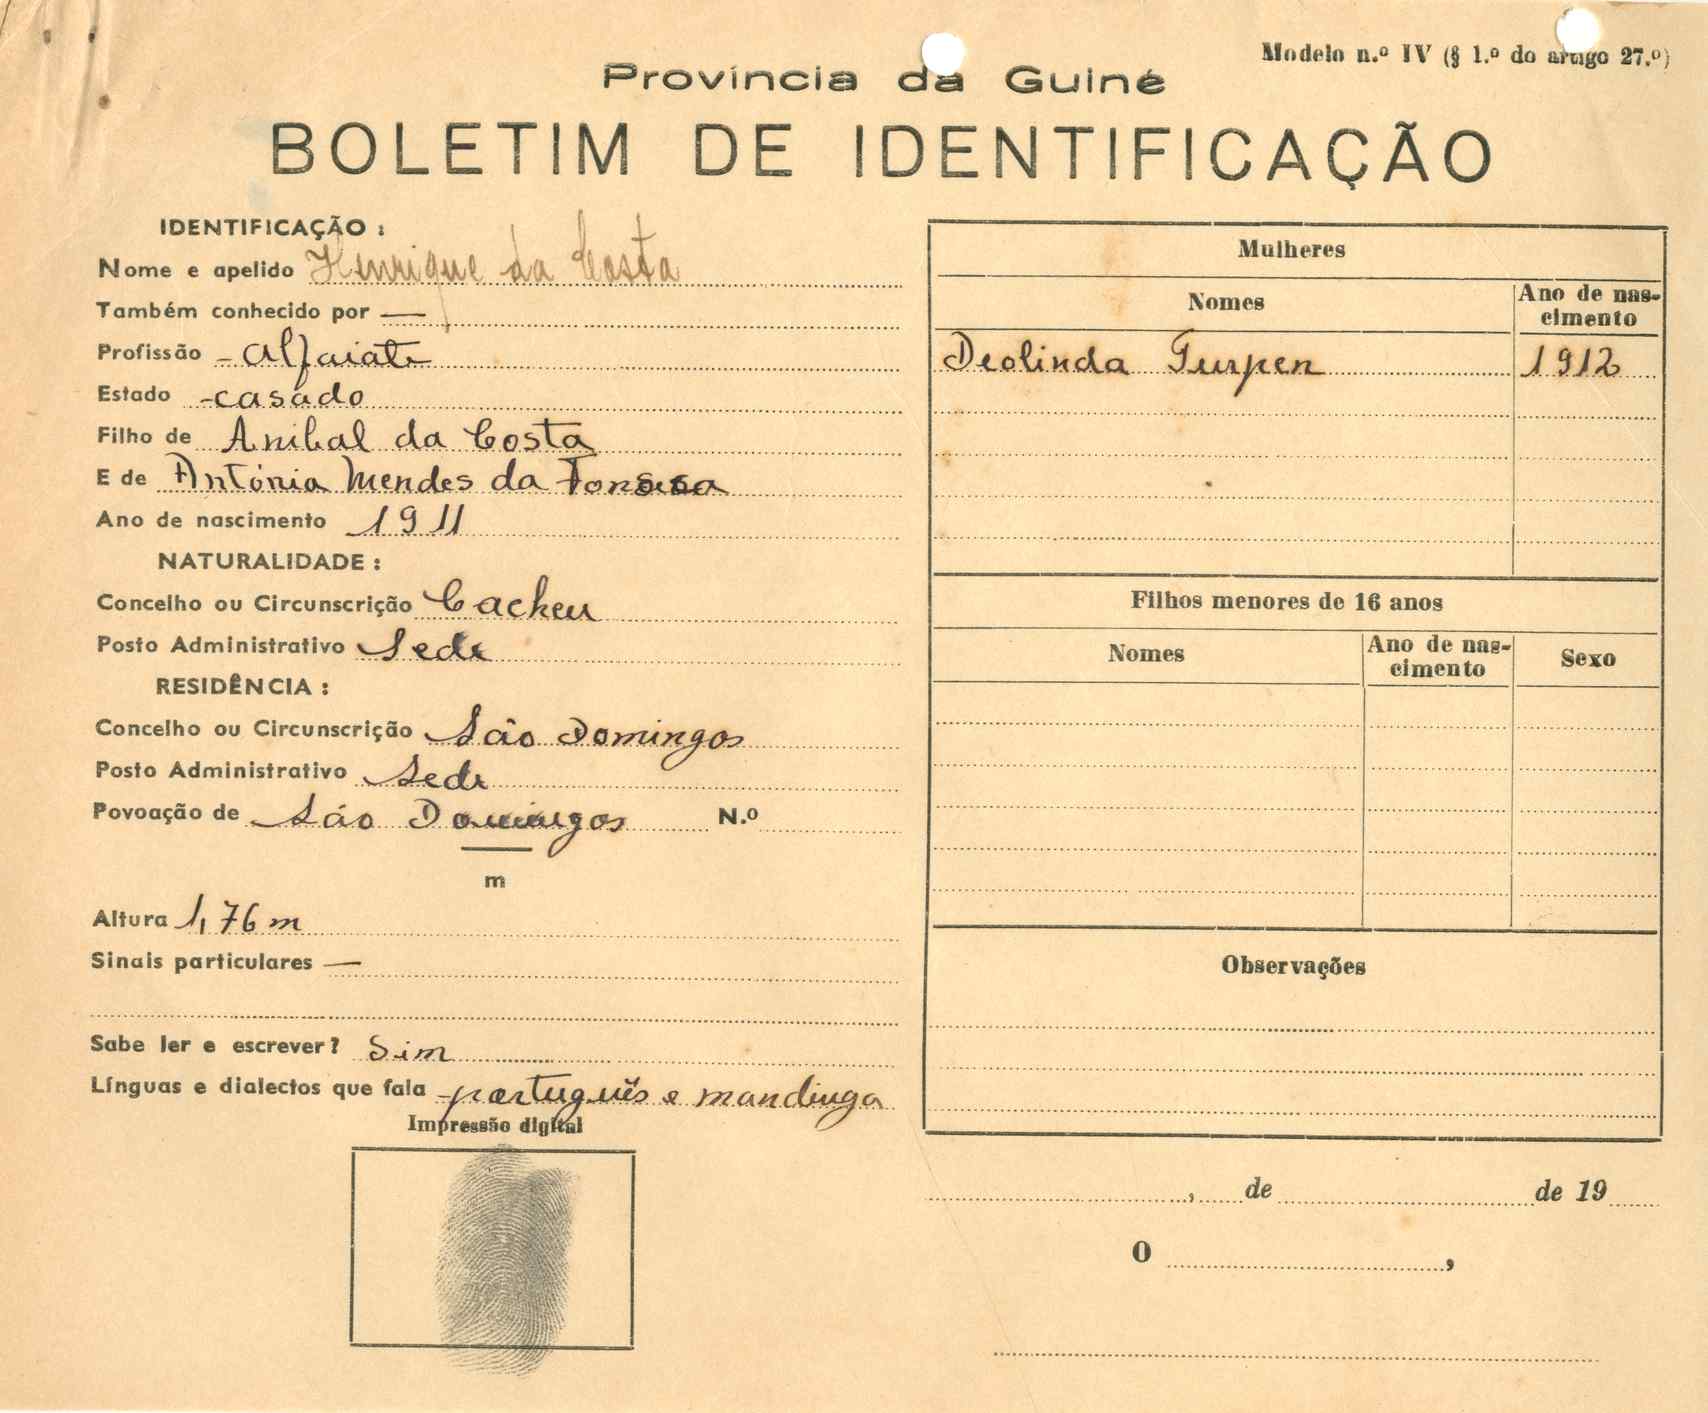 Modelo n.º IV (§ 1.º do artigo 27.º)
Província da Guiné
BOLETIM DE IDENTIFICAÇÃO
IDENTIFICAÇÃO :
Nome e apelido Henrique da Costa
Também conhecido por —
Profissão - Alfaiate
Estado - casado
Filho de Anibal da Costa
E de António Mendes da Fonseca
Ano de nascimento 1911
NATURALIDADE :
Concelho ou Circunscrição Cacheu
Posto Administrativo Sede
RESIDÊNCIA :
Concelho ou Circunscrição São Domingos
Posto Administrativo Sede
Povoação de São Domingos N.º
m
Altura 1,76 m
Sinais particulares —
Sabe ler e escrever? Sim
Línguas e dialectos que fala - português e mandinga
Impressão digital
Mulheres
Nomes Ano de nas-
cimento
Deolinda Turpen 1912
Filhos menores de 16 anos
Nomes Ano de nas- Sexo
cimento
Observações
, de de 19
O ,